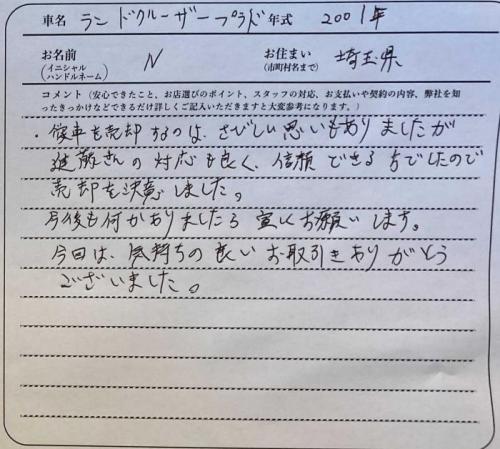 車名 ランドクルーザープラド 年式 2001年
お名前 (イニシャル ハンドルネーム) N お住まい (市町村名まで) 埼玉県
コメント（安心できたこと、お店選びのポイント、スタッフの対応、お支払いや契約の内容、弊社を知
ったきっかけなどできるだけ詳しくご記入いただきますと大変参考になります。）
・愛車を売却するのは、さびしい思いもありましたが
進藤さんの対応も良く、信頼できる方でしたので
売却を決意しました。
今後も何かありましたら宜しくお願いします。
今回は、気持ちの良いお取引きありがとう
ございました。